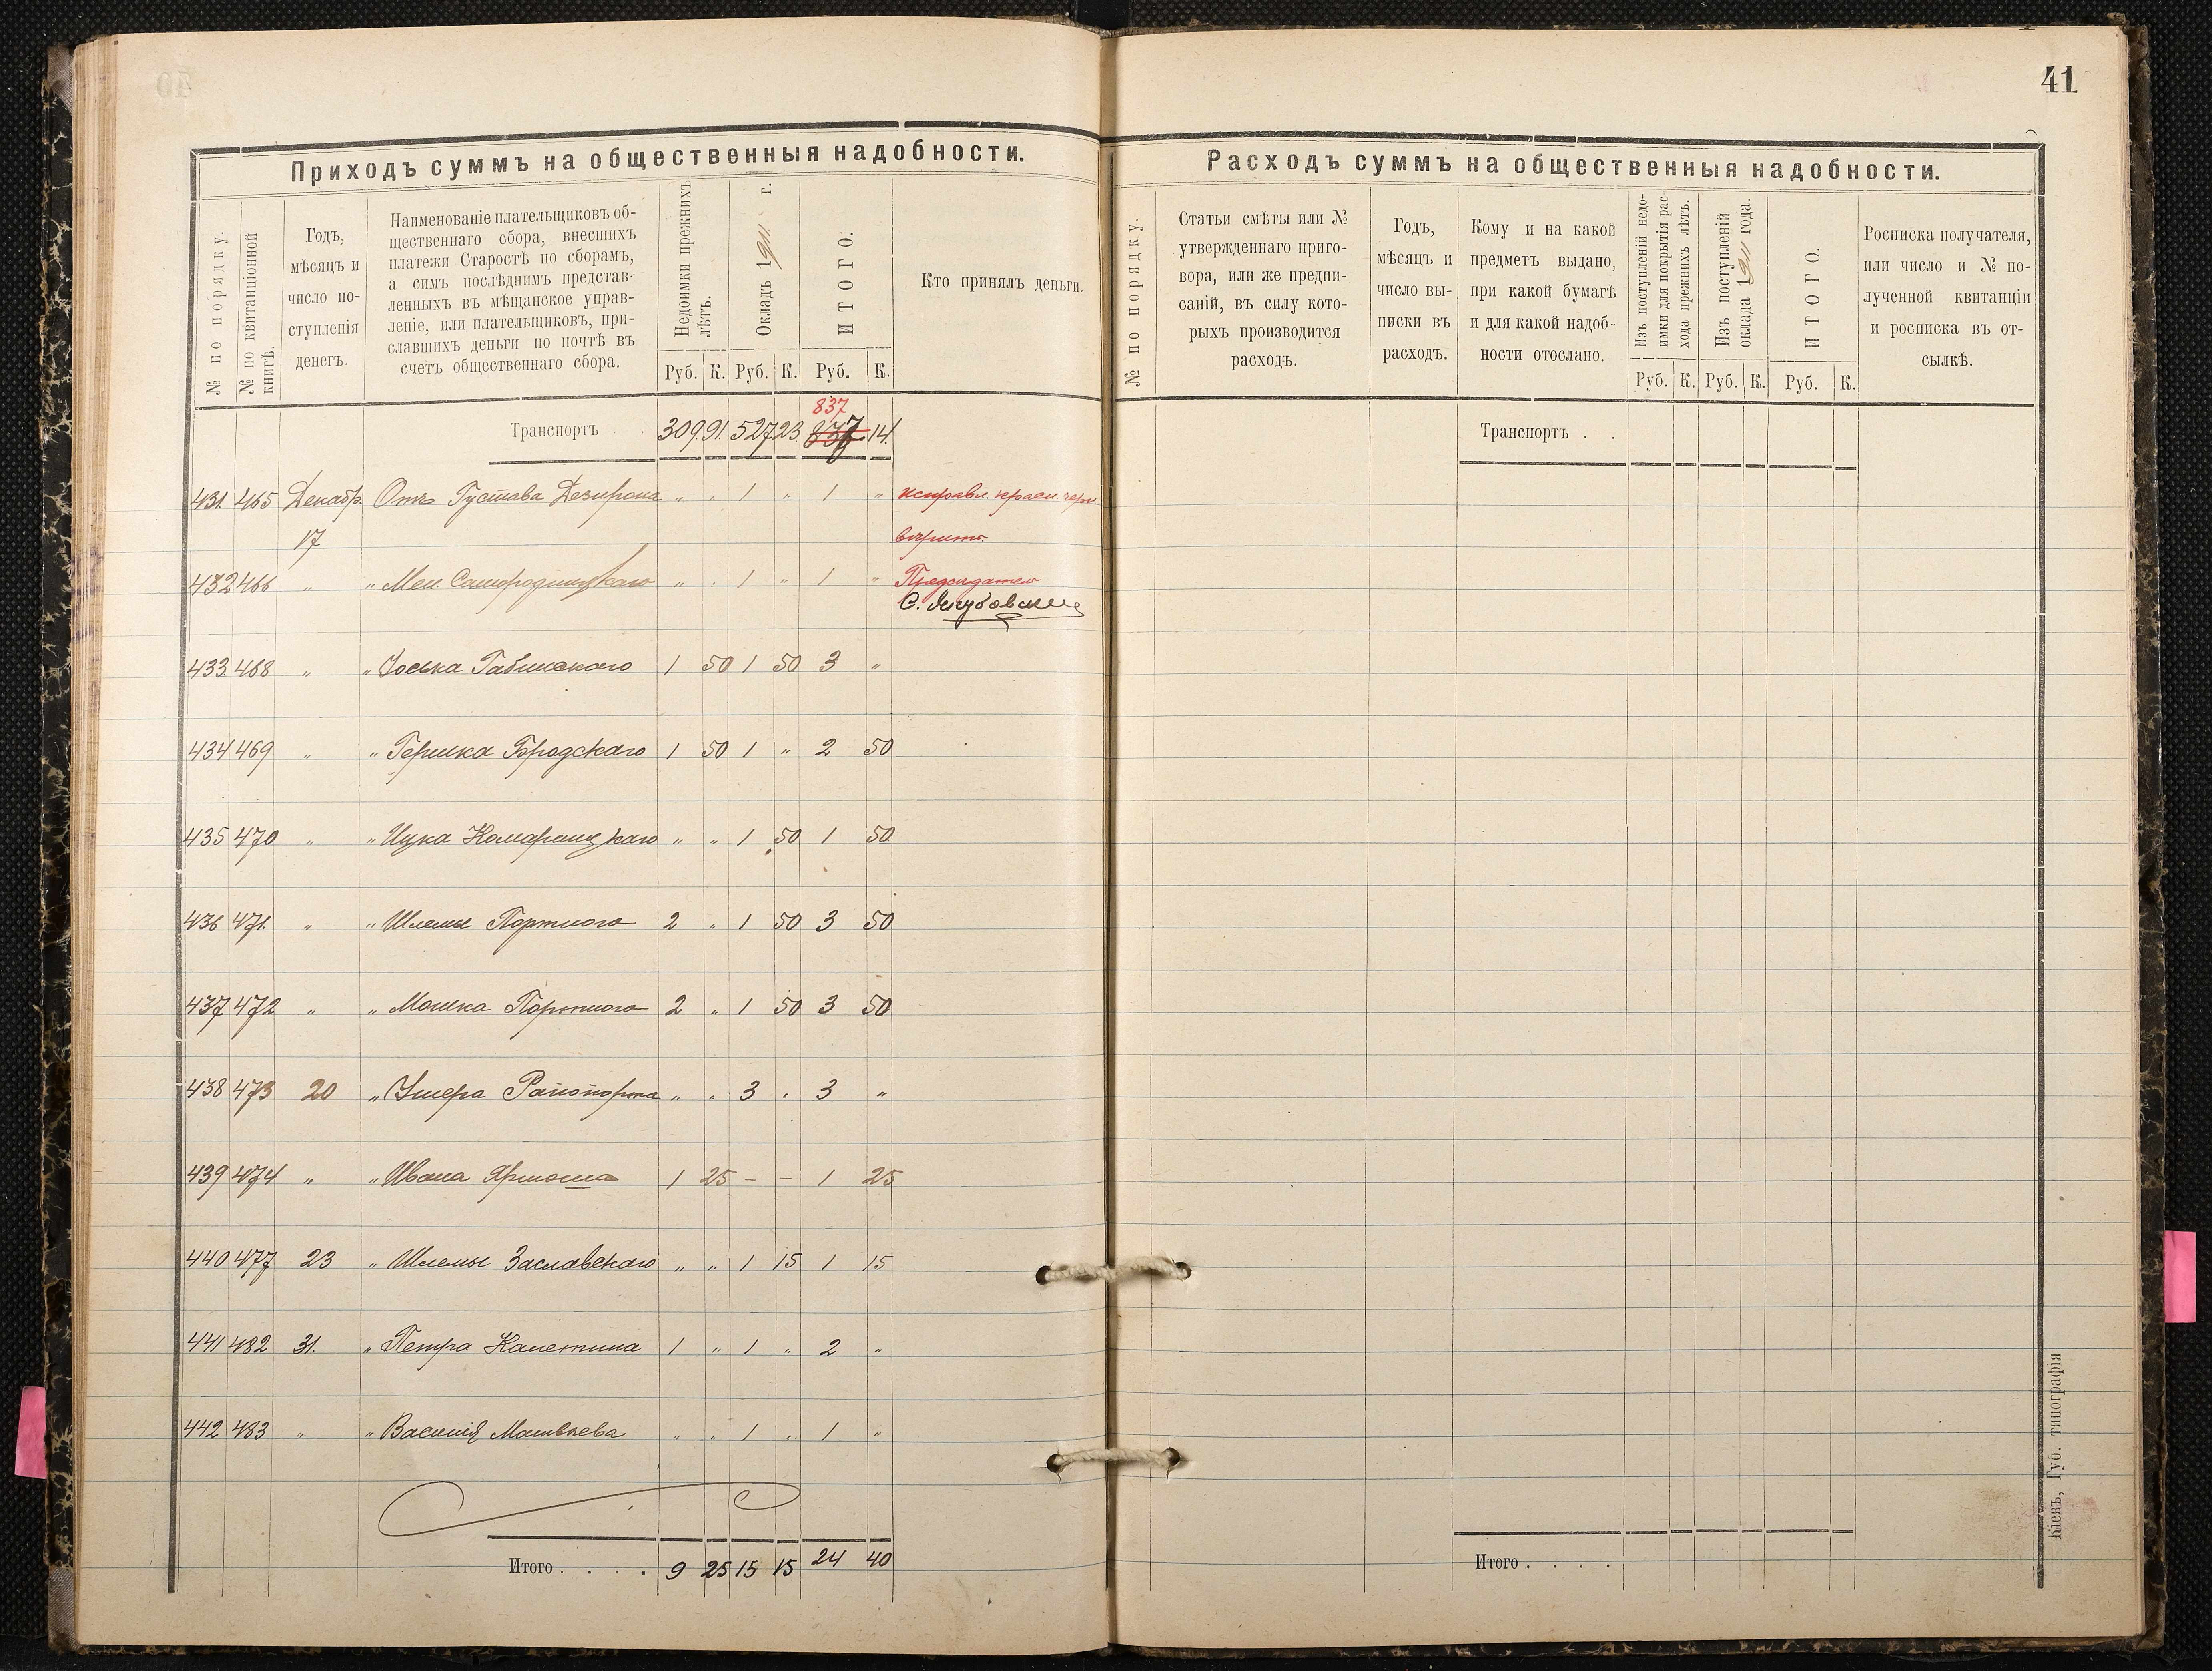 41
Приходъ суммъ на общественныя надобности.
№ по порядку.
№ по квитанціонной
книгѣ.
Годъ,
мѣсяцъ и
число по-
ступленія
денегъ.
Наименованіе плательщиковъ об-
щественнаго сбора, внесшихъ
платежи Старостѣ по сборамъ,
а симъ послѣднимъ представ-
ленныхъ въ мѣщанское управ-
леніе, или плательщиковъ, при-
славшихъ деньги по почтѣ въ
счетъ общественнаго сбора.
Недоимки прежнихъ
лѣтъ.
Окладъ 1911 г.
ИТОГО.
Кто принялъ деньги.
Руб. К. Руб. К. Руб. К.
837
Транспортъ 309 91. 527 23. 837 14.
431. 465 Декабр. Отъ Густава " " 1 " 1 " исправл. красн. черн.
17 вѣрить.
432 466 " " Меи. Самородницкаго " " 1 " 1 " Предсѣдатель
433. 468 " " Іоська Габинскаго 1 50 1 50 3 "
434 469 " " Гершка Бродскаго 1 50 1 " 2 50
435 470 " " Ицка Комарицкаго " " 1 50 1 50
436 471. " " Шлемы Портного 2 " 1 50 3 50
437 472 " " Мошка Портного 2 " 1 50 3 50
438 473 20 " Умера Рапопорта " " 3 " 3 "
439 474 " " Ивана Ярмоша 1 25 - - 1 25
440 477 23 " Шлемы Заславскаго " " 1 15 1 15
441 482 31. " Петра Капетина 1 " 1 " 2 "
442 483 " " Василія Матвѣева " " 1 " 1 "
Итого . . . . 9 25 15 15 24 40
Расходъ суммъ на общественныя надобности.
№ по порядку.
Статьи смѣты или №
утвержденнаго приго-
вора, или же предпи-
саній, въ силу кото-
рыхъ производится
расходъ.
Годъ,
мѣсяцъ и
число вы-
писки въ
расходъ.
Кому и на какой
предметъ выдано,
при какой бумагѣ
и для какой надоб-
ности отослано.
Изъ поступленій недо-
имки для покрытія рас-
хода прежнихъ лѣтъ.
Изъ поступленій
оклада 1911 года.
ИТОГО.
Росписка получателя,
или число и № по-
лученной квитанціи
и росписка въ от-
сылкѣ.
Руб. К. Руб. К. Руб. К.
Транспортъ . .
Итого . . . .
Кіевъ, Губ. типографія